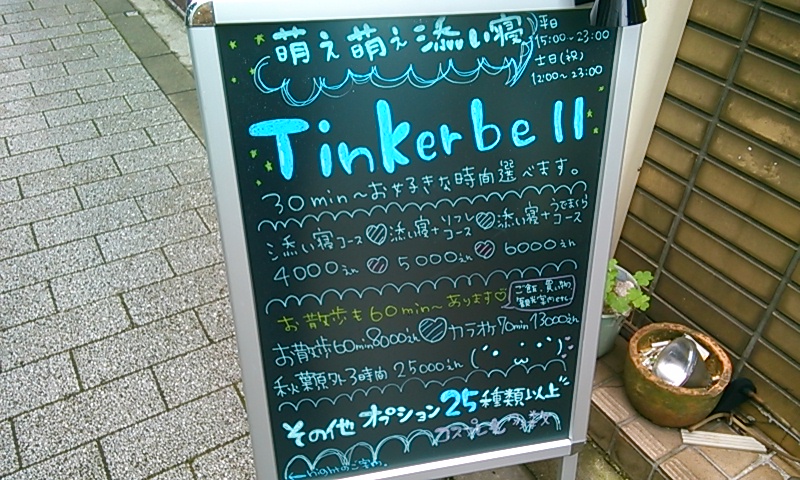 萌え萌え添い寝
平日
15:00~23:00
土日(祝)
12:00~23:00
Tinkerbell
30min~お好きな時間選べます。
添い寝コース♡添い寝+リフレコース♡添い寝+うでまくらコース
4000えん♡5000えん♡6000えん
お散歩も60min~あります♡
ご飯、買い物
観光案内etc
お散歩60min8000えん♡カラオケ70min13000えん
秋葉原外3時間 25000えん
その他 オプション25種類以上
コスプレも多数